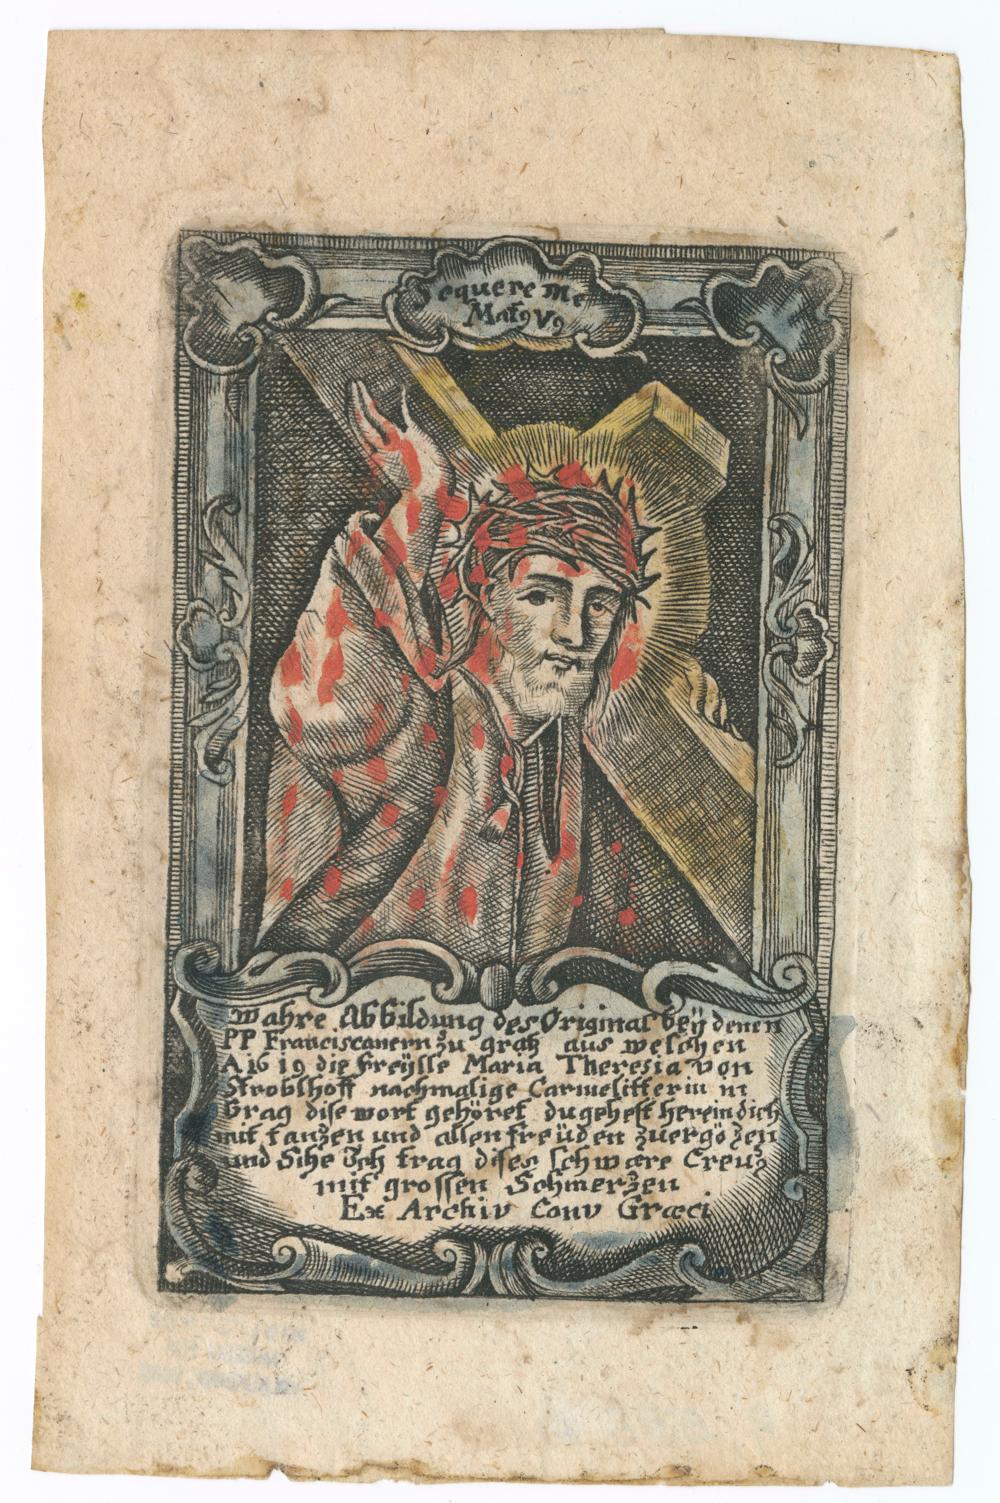 Sequere me
Mat 9 V 9
Wahre Abbildung des Original beÿ denen
PP Franciscanern zu gratz aus welchen
A 1619 die freÿlle Maria Theresia von
Stroblhoff nachmalige Carmelitterin in
Prag dise wort gehöret du gehest herein dich
mit tanzen und allen freüden zuergözen
und Sihe Ich trag dises schwære Creuz
mit grossen Schmerzen
Ex Archiv Conv Græci